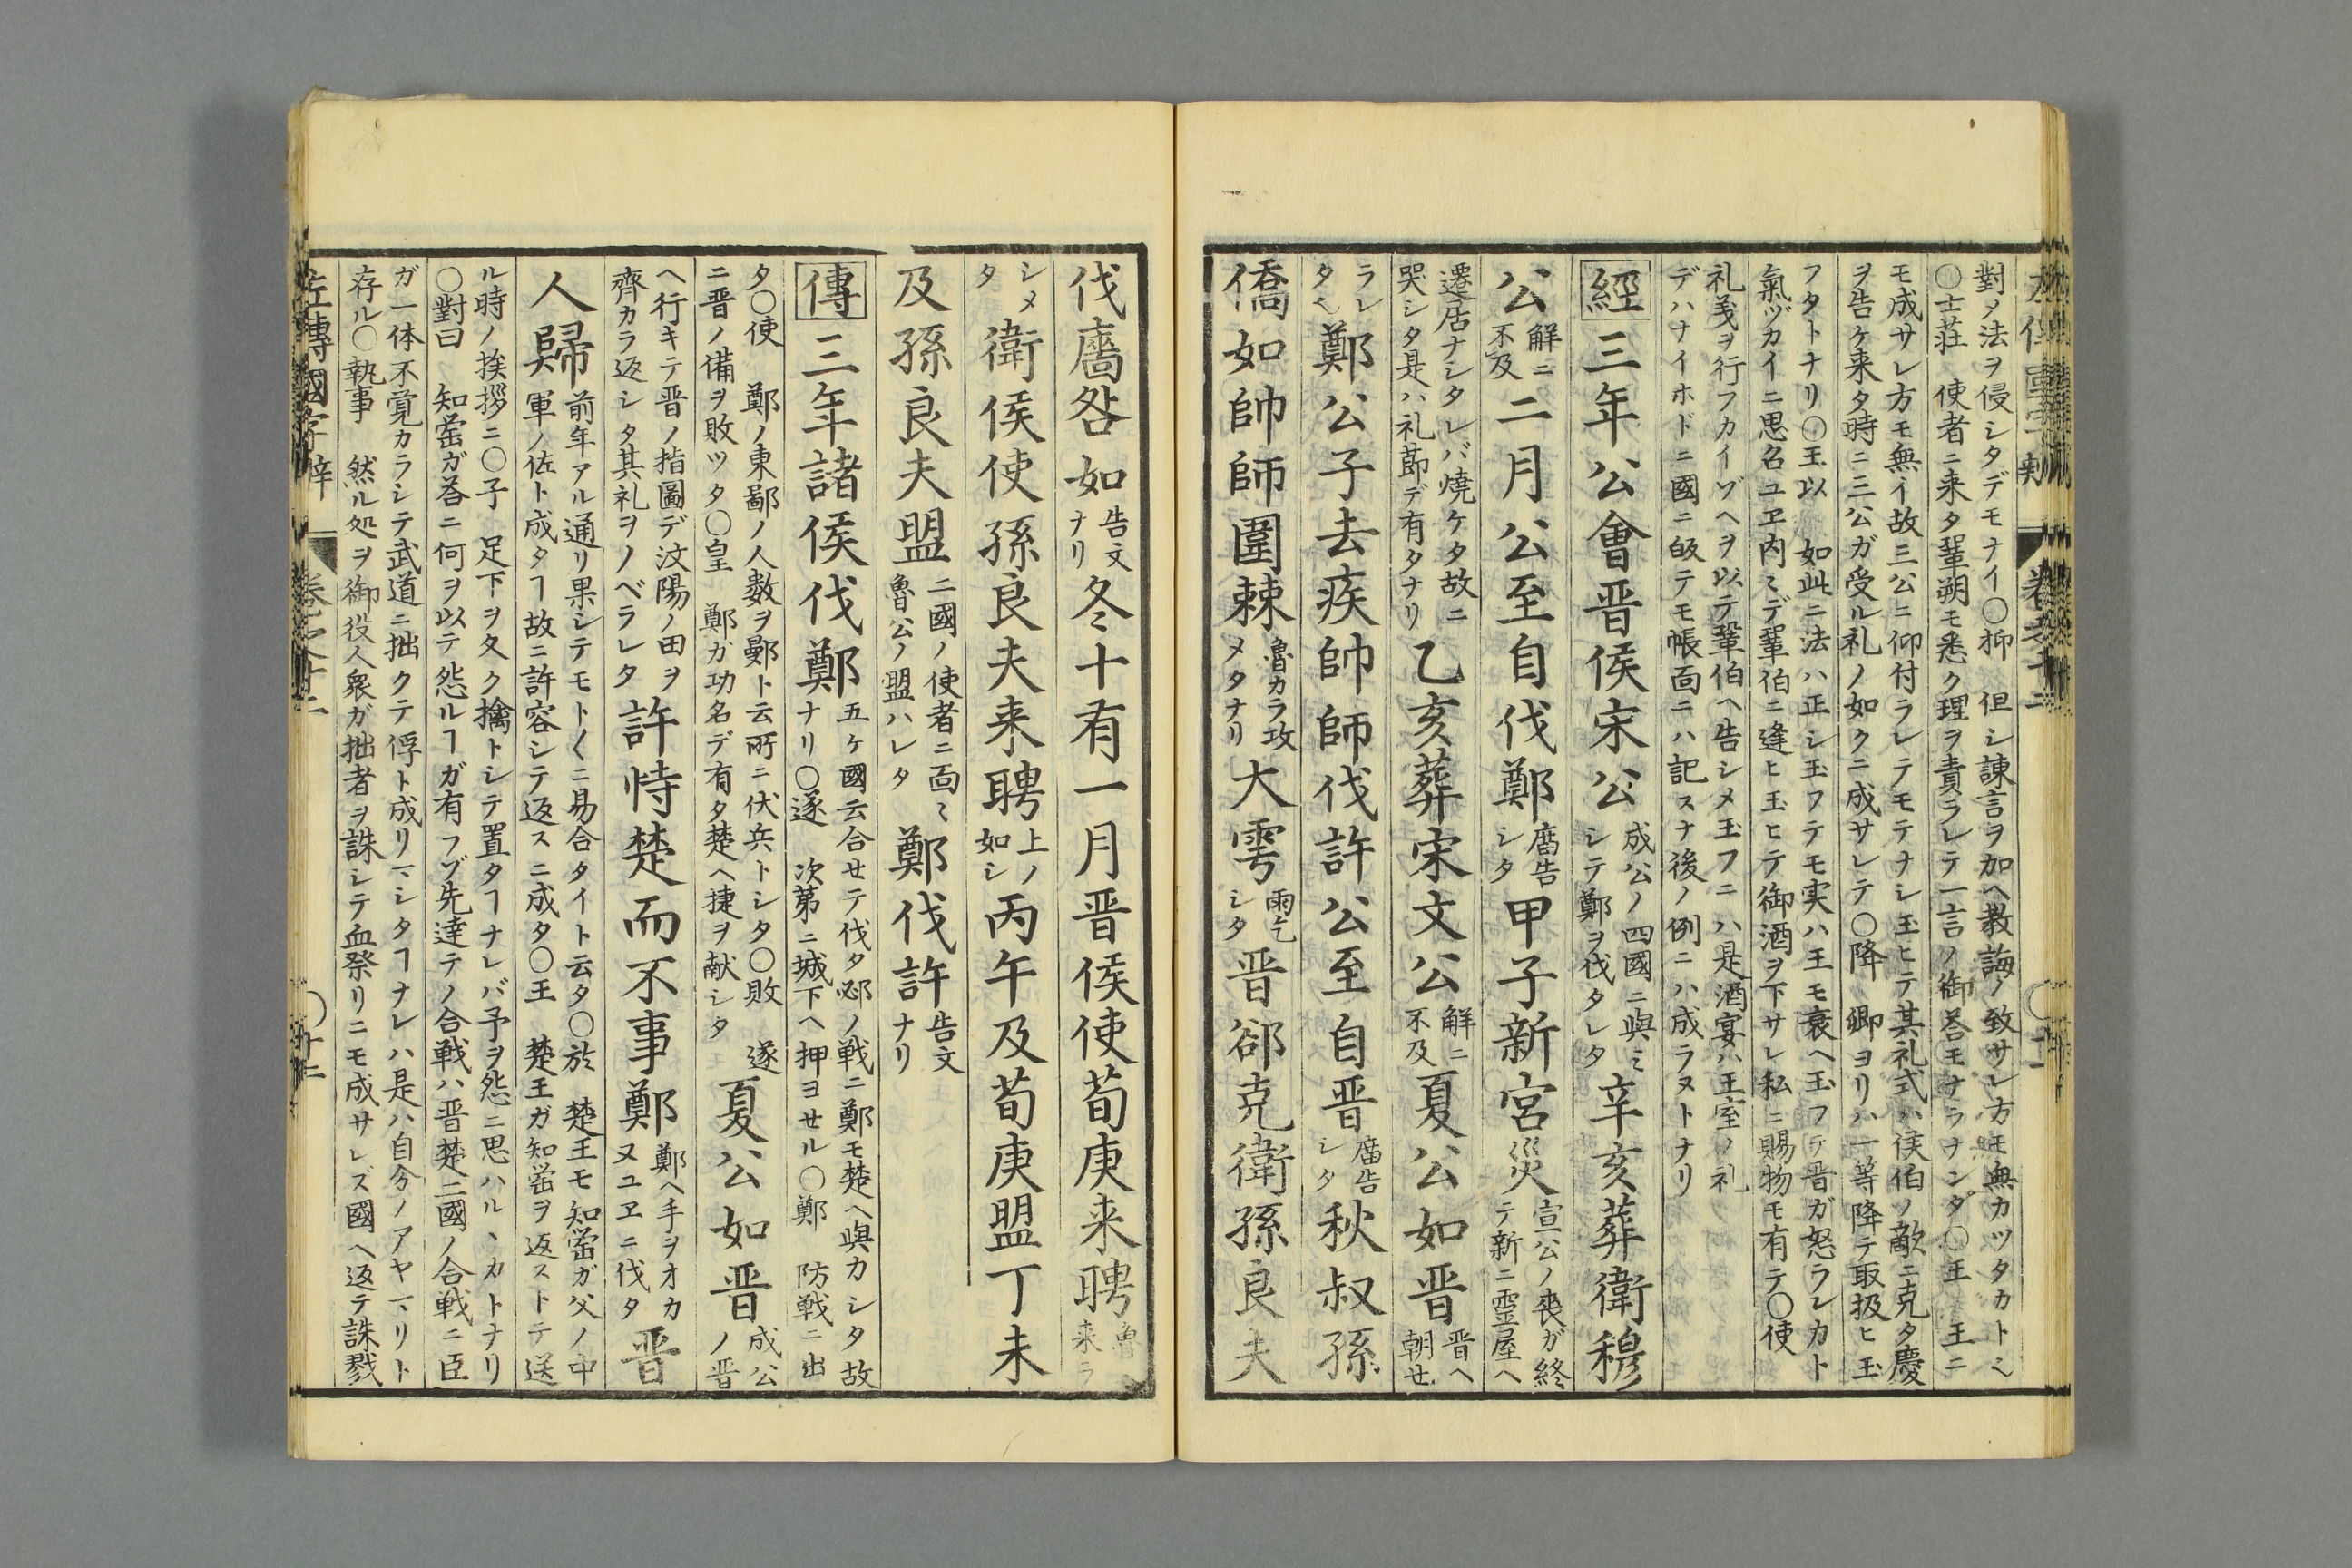 對メ法ヲ侵シタデモナイ〇抑　但シ諌言ヲ加ヘ教誨ノ致サレ方モ無カツタカトミ
〇士莊　使者ニ来タ鞏朔モ悉ク理ヲ責ラレテ一言ノ御荅モナラナンダ〇王　王ニ
モ成サレ方モ無イ故三公ニ仰付ラレテモテナシ玉ヒテ其礼式ハ侯伯ノ敵ニ克タ慶
ヲ告ケ来タ時ニ三公ガ受ル礼ノ如クニ成サレテ〇降　卿ヨリハ一等降テ取扱ヒ玉
フタトナリ〇王以　如此ニ法ハ正シ玉フテモ実ハ王モ衰ヘ玉フテ晋ガ怒ラレカト
氣ヅカイニ思名ユヱ内ミデ鞏伯ニ逢ヒ玉ヒテ御酒ヲ下サレ私ニ賜物モ有テ〇使
礼義ヲ行フカイゾヘヲ以テ鞏伯ヘ告シメ玉フニハ是酒宴ハ王室ノ礼
デハナイホドニ國ニ皈テモ帳面ニハ記スナ後ノ例ニハ成ラヌトナリ
經三年公會晋侯宋公 成公ノ四國ニ與ミシテ鄭ヲ伐タレタ 辛亥葬衛穆
公 解ニ不及 二月公至自伐鄭 廟告シタ 甲子新宮災 宣公ノ喪ガ終テ新ニ霊屋ヘ
遷居ナシタレバ焼ケタ故ニ哭シタ是ハ礼莭デ有タナリ 乙亥葬宋文公 解ニ不及 夏公如晋 晋ヘ朝せ
ラレタヘ 鄭公子去疾帥師伐許公至自晋 廟告シタ 秋叔孫
僑如帥師圍棘 魯カラ攻メタナリ 大雩 雨乞シタ 晋郤克衛孫良夫
伐廧咎如 告文ナリ 冬十有一月晋侯使荀庚来聘 魯来ラ
シメタ 衛侯使孫良夫来聘 上ノ如シ 丙午及荀庚盟丁未
及孫良夫盟 二國ノ使者ニ面ミ魯公ノ盟ハレタ 鄭伐許 告文ナリ
傳三年諸侯伐鄭 五ヶ國云合せテ伐タ邲ノ戦ニ鄭モ楚ヘ與カシタ故ナリ〇遂　次第ニ城下ヘ押ヨせル〇鄭　防戦ニ出
タ〇使　鄭ノ東鄙ノ人数ヲ鄤ト云所ニ伏兵トシタ〇敗　遂ニ晋ノ備ヲ敗ツタ〇皇　鄭ガ功名デ有タ楚ヘ捷ヲ献シタ 夏公如晋 成公ノ晋
ヘ行キテ晋ノ指圖デ汶陽ノ田ヲ齊カラ返シタ其礼ヲノベラレタ 許恃楚而不事鄭 鄭ヘ手ヲオカヌユヱニ伐タ 晋
人歸 前年アル通リ果シテモト〱ニ易合タイト云タ〇於　楚王モ知罃ガ父ノ中軍ノ佐ト成タヿ故ニ許容シテ返スニ成タ〇王　楚王ガ知罃ヲ返ストテ送
ル時ノ挨拶ニ〇子　足下ヲ久ク擒トシテ置タヿナレバ予ヲ怨ニ思ハルヽカトナリ
〇對曰　知罃ガ荅ニ何ヲ以テ怨ルヿガ有フゾ先達テノ合戦ハ晋楚二國ノ合戦ニ臣
ガ一体不覚カラシテ武道ニ拙クテ俘ト成リマシタヿナレハ是ハ自分ノアヤマリト
存ル〇執事　然ル処ヲ御役人衆ガ拙者ヲ誅シテ血祭リニモ成サレズ國ヘ返テ誅戮
左傳國字辯　卷之十二　〇十二